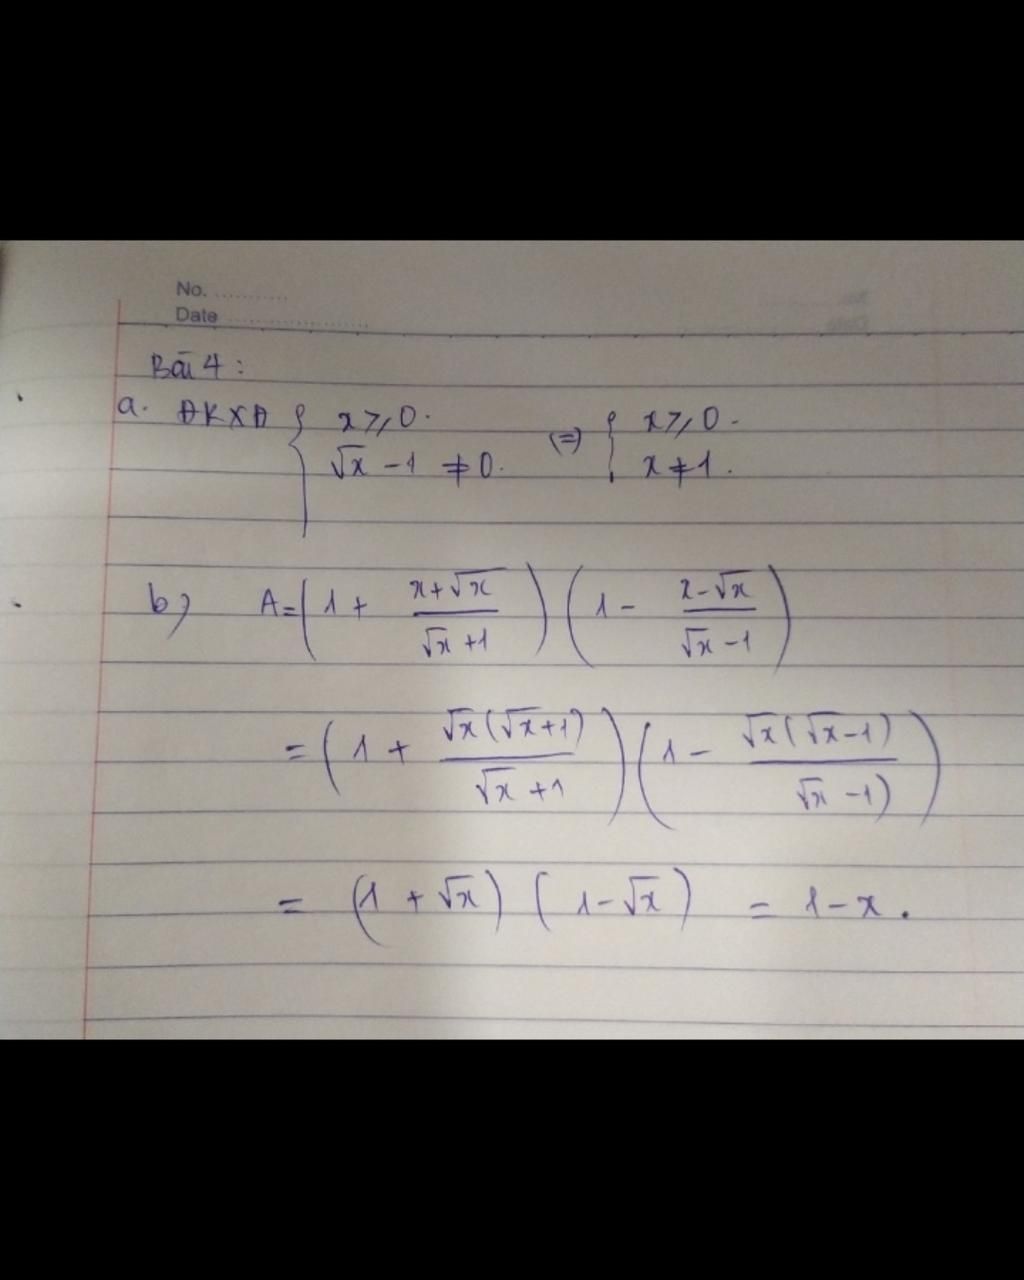 No. ............
Date ........................
Bài 4 :
a. ĐKXĐ { x ≥ 0. √x - 1 ≠ 0. (=) { x ≥ 0. x ≠ 1.
b) A = (1 + (x+√x)/(√x+1)) (1 - (x-√x)/(√x-1))
= (1 + √x(√x+1)/(√x+1)) (1 - √x(√x-1)/(√x-1))
= (1 + √x) (1-√x) = 1-x.